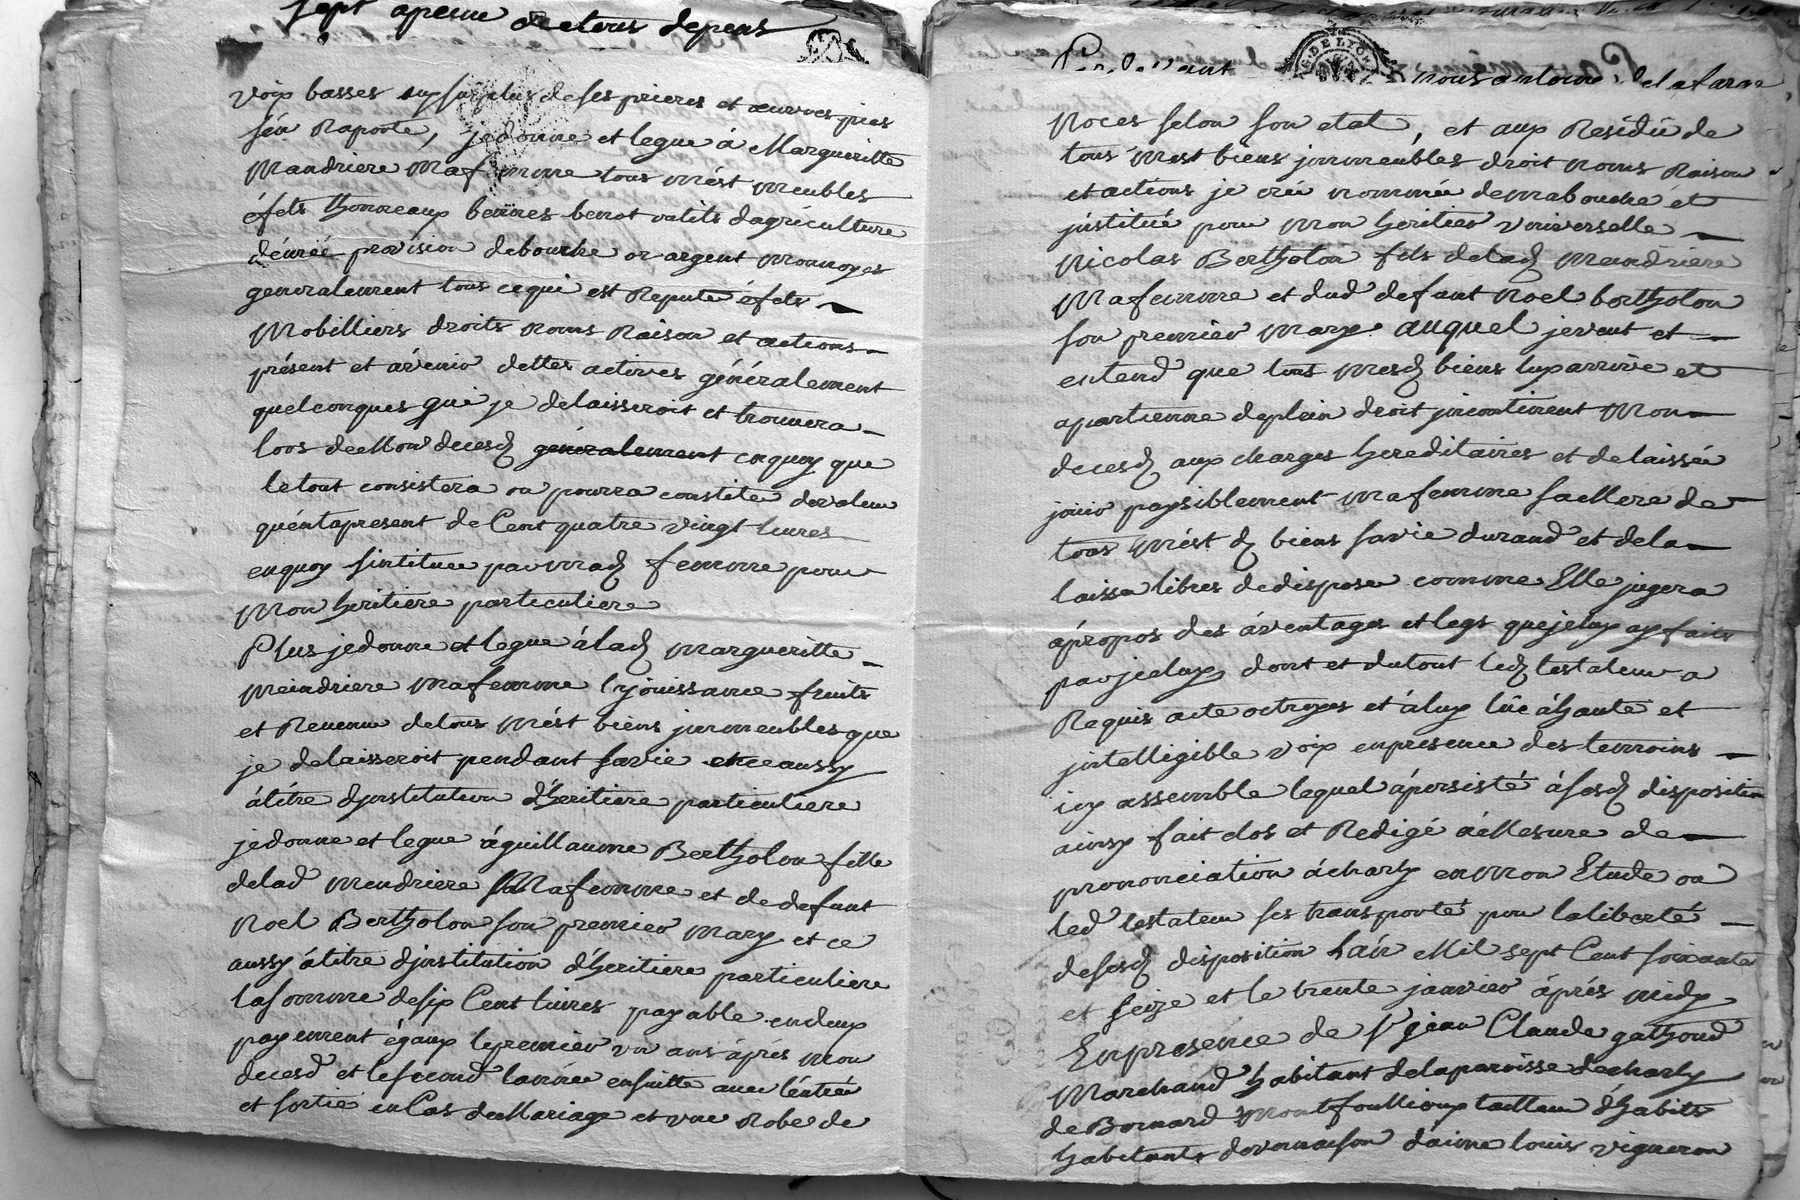 sept apeine de tous depens
voix basses surplus deses prieres et oeuvres pies
sen Raporte, jedonne et legue á Margueritte
Mandriere Mafemme tous mést meubles
éfets thonneaux bennes benot outils dagriculture
dénrée provision debouche or argent monnoyes
generalement tous cequi est Reputé éfets
Mobilliers droits noms Raison et actions
présent et avenir dettes actives généralement
quelconques que je delaisseroit et trouvera
lors deMon decesd generalement enquoy que
letout consistera ou pourra constiter devaleur
quéntapresent de Cent quatre vingt livres
enquoy jintitue parmad femme pour
Mon heritiere particuliere
Plus jedonne et legue áladt Margueritte
Meindriere Mafemme lyjouissance fruits
et Revenu detous mést biens jmmeubles que
je delaisseroit pendant savie etceaussy
átitre djnstitution dheritiere particuliere
jedonne et legue águillaume Bertholon fille
delad Mendriere Mafemme et dedefunt
Noel Bertholon son premier mary et ce
aussy átitre djnstitution dheritiere particuliere
lasomme desix Cent livres payable endeux
payement égaux lepremier un ans áprés mon
decesd et lesecond lannée ensuitte avec léntrée
et sortie enCas deMariage et une Robe de
Pardevant nous antoine delafarge
Noces selon son etat, et aux Residû de
tous mest biens jmmeubles droit noms Raison
et actions je crée nommée demabouche et
jnstitué pour mon heritier universelle
Nicolas Bertholon fils deladt mendriere
Mafemme et dud defunt Noel bertholon
son premier mary auquel jeveut et
entend que tous mesdt biens luy arrive et
apartienne deplein droit jncontinent mon
decesdt aux charges hereditaires et delaissée
jouir paysiblement mafemme saMere de
tous mést dt biens savie durand et dela
laissa libres dedisposer comme Elle jugera
ápropos des áventages et legs quejeluy ay faits
parjceluy dont et dutout ledt testateur a
Requis acte octroyes et áluy lûe áhaute et
jntelligible voix enpresence des temoins
icy assemble lequel ápersisté ásesdt disposition
ainsy fait clos et Redigé áMesure de
prononciation ácharly enmon Etude ou
led testateur ses transporté pour laliberté
desesdt disposition Lán Mil sept Cent soixante
et seize et le trente janvier áprés midy
Enpresence de sr jean Claude gathoud
Marchand habitant delaparoisse decharly
de Bernard Montfoullioux tailleur dhabits
habitants devernaison daime louis vigneron